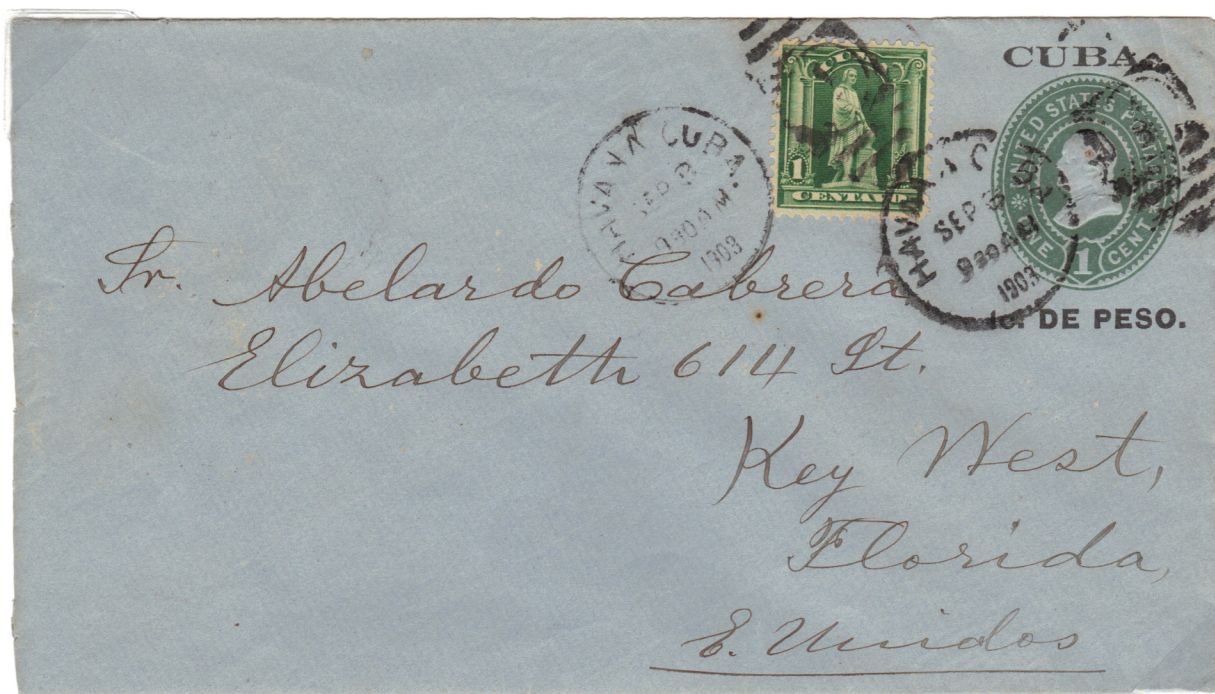 CUBA
UNITED STATES POSTAGE
ONE 1 CENT
1c. DE PESO.
CUBA
1 1
CENTAVO
HAVANA CUBA.
SEP
930 A M
1903
HAVANA C
SEP
930 A M
1903
Sr. Abelardo Cabrera
Elizabeth 614 St.
Key West,
Florida,
E. Unidos